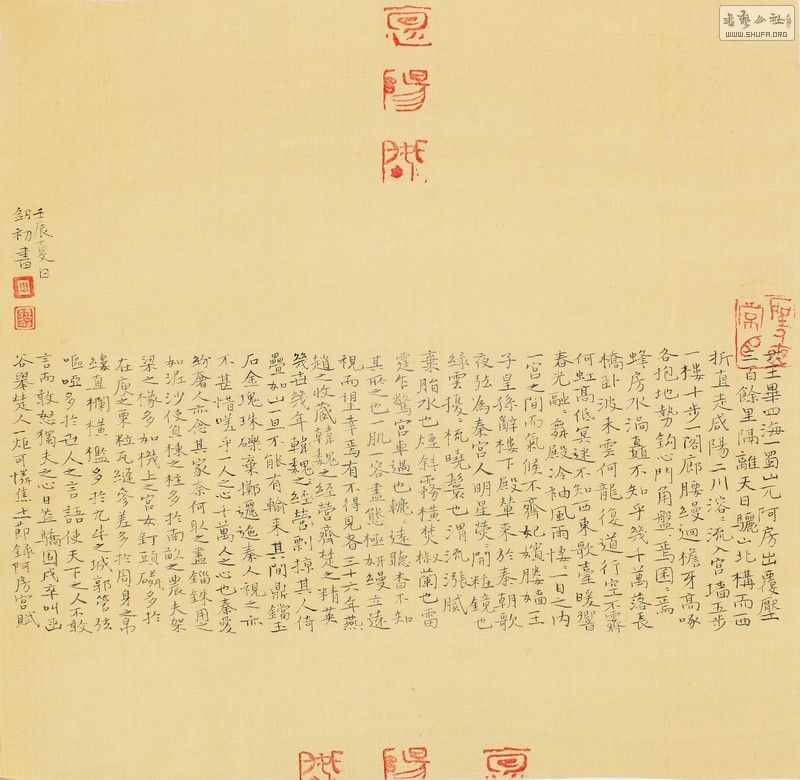 六王畢四海一蜀山兀阿房出覆壓
三百餘里隔離天日驪山北構而西
折直走咸陽二川溶〻流入宫墙五步
一樓十步一閣廊腰縵迴檐牙高啄
各抱地勢鈎心鬥角盤〻焉囷〻焉
蜂房水渦矗不知乎幾千萬落長
橋卧波未雲何龍復道行空不霽
何虹高低冥迷不知西東歌臺暖響
春光融〻舞殿冷袖風雨悽一日之内
一宫之間而氣候不齊妃嬪媵嬙王
子皇孫辭樓下殿輦来於秦朝歌
夜弦為秦宫人明星熒〻開粧鏡也
緑雲擾〻梳曉鬟也渭流漲膩
棄脂水也煙斜霧横焚椒蘭也雷
霆乍驚宫車過也轆〻遠聽杳不知
其所之也一肌一容盡態極妍縵立遠
視而望幸焉有不得見者三十六年燕
趙之收藏韓魏之經營齊楚之精英
幾世幾年韓魏之經營剽掠其人倚
疊如山一旦不能有輸来其間鼎鐺玉
石金塊珠礫棄擲邐迤秦人視之亦
不甚惜嗟乎一人之心千萬人之心也秦愛
紛奢人亦念其家奈何取之盡錙銖用之
如泥沙使負棟之柱多於南畝之農夫架
梁之椽多如機上之宫女釘頭磷〻多於
在庾之粟粒瓦縫參差多於周身之帛
縷直欄横檻多於九牛之城郭管弦
嘔啞多於世人之言語使天下之人不敢
言而敢怒獨夫之心日益驕固戍卒叫函
谷舉楚人一炬可憐焦土節録阿房宫賦
壬辰夏日
初書
書藝公社
WWW.SHUFA.ORG